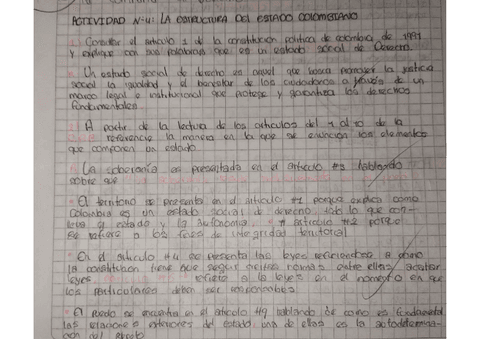 ACTIVIDAD N-4: LA ESTRUCTURA DEL ESTADO COLOMBIANO
1.) Consultar el artículo 1 de la constitución politica de colombia de 1991
y explique con sus palabras que es un estado social de Derecho.
R. Un estado social de derecho es aquel que busca promover la justica
social la igualdad y el bienestar de los ciudadanos a través de un
marco legal e institucional que protege y garantiza los derechos
fundamentales
2.) A partir de la lectura de los articulos del 1 al 10 de la
referencie la manera en la que se enuncian los elementos
que componen un estado.
La soberanía es presentada en el articulo #3 hablando
sobre que
El territorio se presenta en el articulo #1 porque explica como
Colombia es un estado social de derecho, todo lo que con-
lleva el estado y la autonomía. articulo #2 porque
se refiere a los fines de integridad territorial
En el articulo #4 se presenta las leyes refiriendose a como
la constitucion tiene que seguir ciertas normas entre ellas acatar
leyes refirio a la leyes en el momento en que
los particulares deben ser responsables
El pueblo se encuentra en el articulo #9 hablando de como es fundamental
las relaciones exteriores del estado, una de ellas es la autodetermina-
cion del pueblo